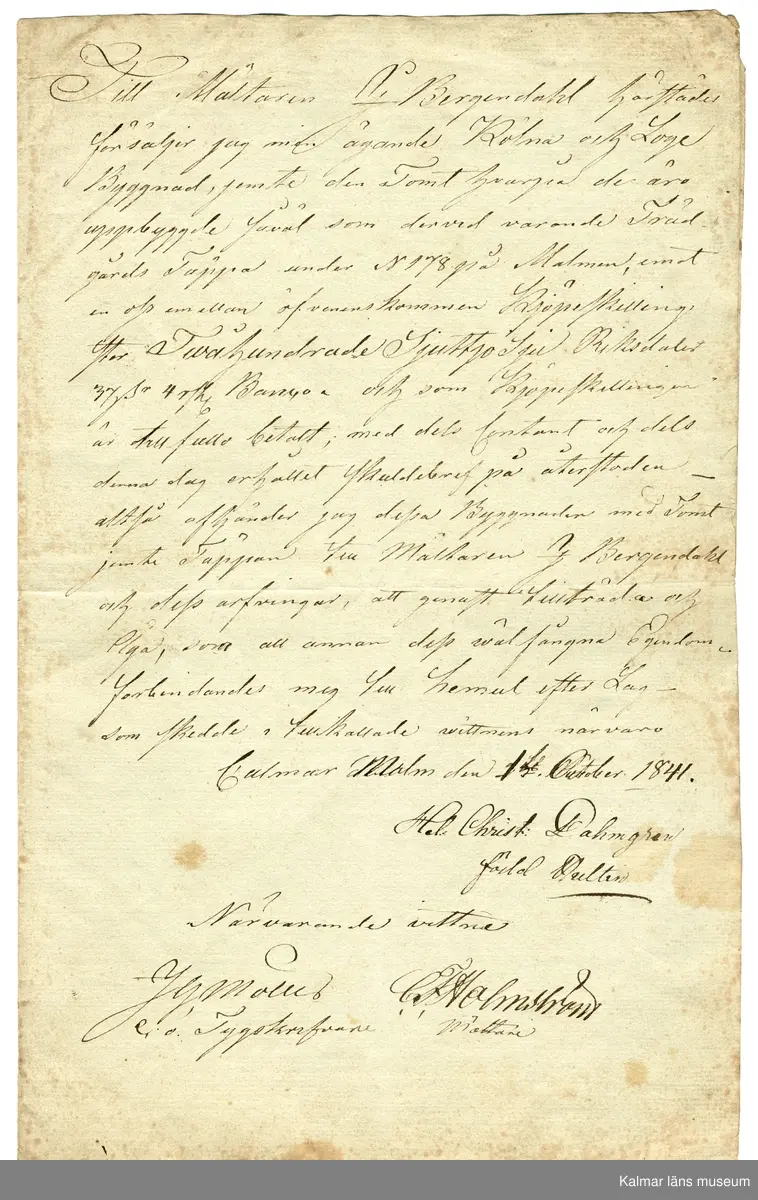 Till Mältaren P: Bergendahl härstädes
försäljer jag min ägande Kölna och Loge
Byggnad, jemte den Tomt hvarpå de äro
uppbyggde såväl som dervid varande Träd-
gårds Täppa under N 178 på Malmen, emot
en oss emellan öfverenskommen Kjöpeskilling
stor Twåhundrade Sjuttjo Sju Riksdaler
37 sk 4 r Banco och som Kjöpeskillingen
är till fullo betalt, med dels Contant och dels
denna dag erhållet skuldebref på återstoden –
altså afhänder jag dessa Byggnader med Tomt
jemte Täppan till Mältaren P Bergendahl
och dess arfvingar, att genast tillträda och
Äga, som all annan dess wälfångna Egendom –
förbindandes mig till hemul efter Lag –
som skedde i tillkallade wittnens närvaro
Calmar Malm den 1 October 1841.
Hel: Christ: Dahmgren
född Hultin
Närvarande vittne
C F Holmström
e: o. Tygskrifvare Mältare
Kalmar läns museum